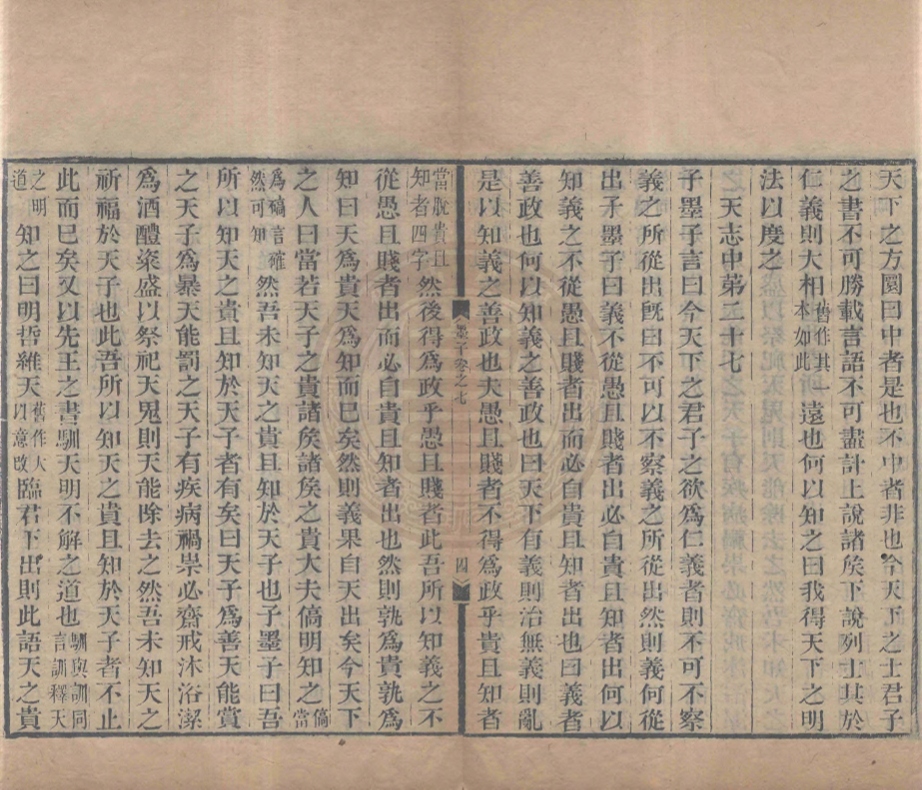 天下之方圜曰中者是也不中者非也今天下之士君子
之書不可勝載言語不可盡計上說諸矦下說列士其於
仁義則大相舊作其一本如此遠也何以知之曰我得天下之明
法以度之
天志中第二十七
子墨子言曰今天下之君子之欲爲仁義者則不可不察
義之所從出旣曰不可以不察義之所從出然則義何從
出子墨子曰義不從愚且賤者出必自貴且知者出何以
知義之不從愚且賤者出而必自貴且知者出也曰義者
善政也何以知義之善政也曰天下有義則治無義則亂
是以知義之善政也夫愚且賤者不得爲政乎貴且知者
墨子卷之七
四
當脫貴且知者四字然後得爲政乎愚且賤者此吾所以知義之不
從愚且賤者出而必自貴且知者出也然則孰爲貴孰爲
知曰天爲貴天爲知而巳矣然則義果自天出矣今天下
之人曰當若天子之貴諸矦諸矦之貴大夫傐明知之傐當
爲碻言確然可知然吾未知天之貴且知於天子也子墨子曰吾
所以知天之貴且知於天子者有矣曰天子爲善天能賞
之天子爲暴天能罰之天子有疾病禍祟必齋戒沐浴潔
爲酒醴粢盛以祭祀天鬼則天能除去之然吾未知天之
祈福於天子也此吾所以知天之貴且知於天子者不止
此而巳矣又以先王之書馴天明不解之道也馴與訓同言訓釋天
之明道知之曰明哲維天舊作大以意改臨君下出則此語天之貴